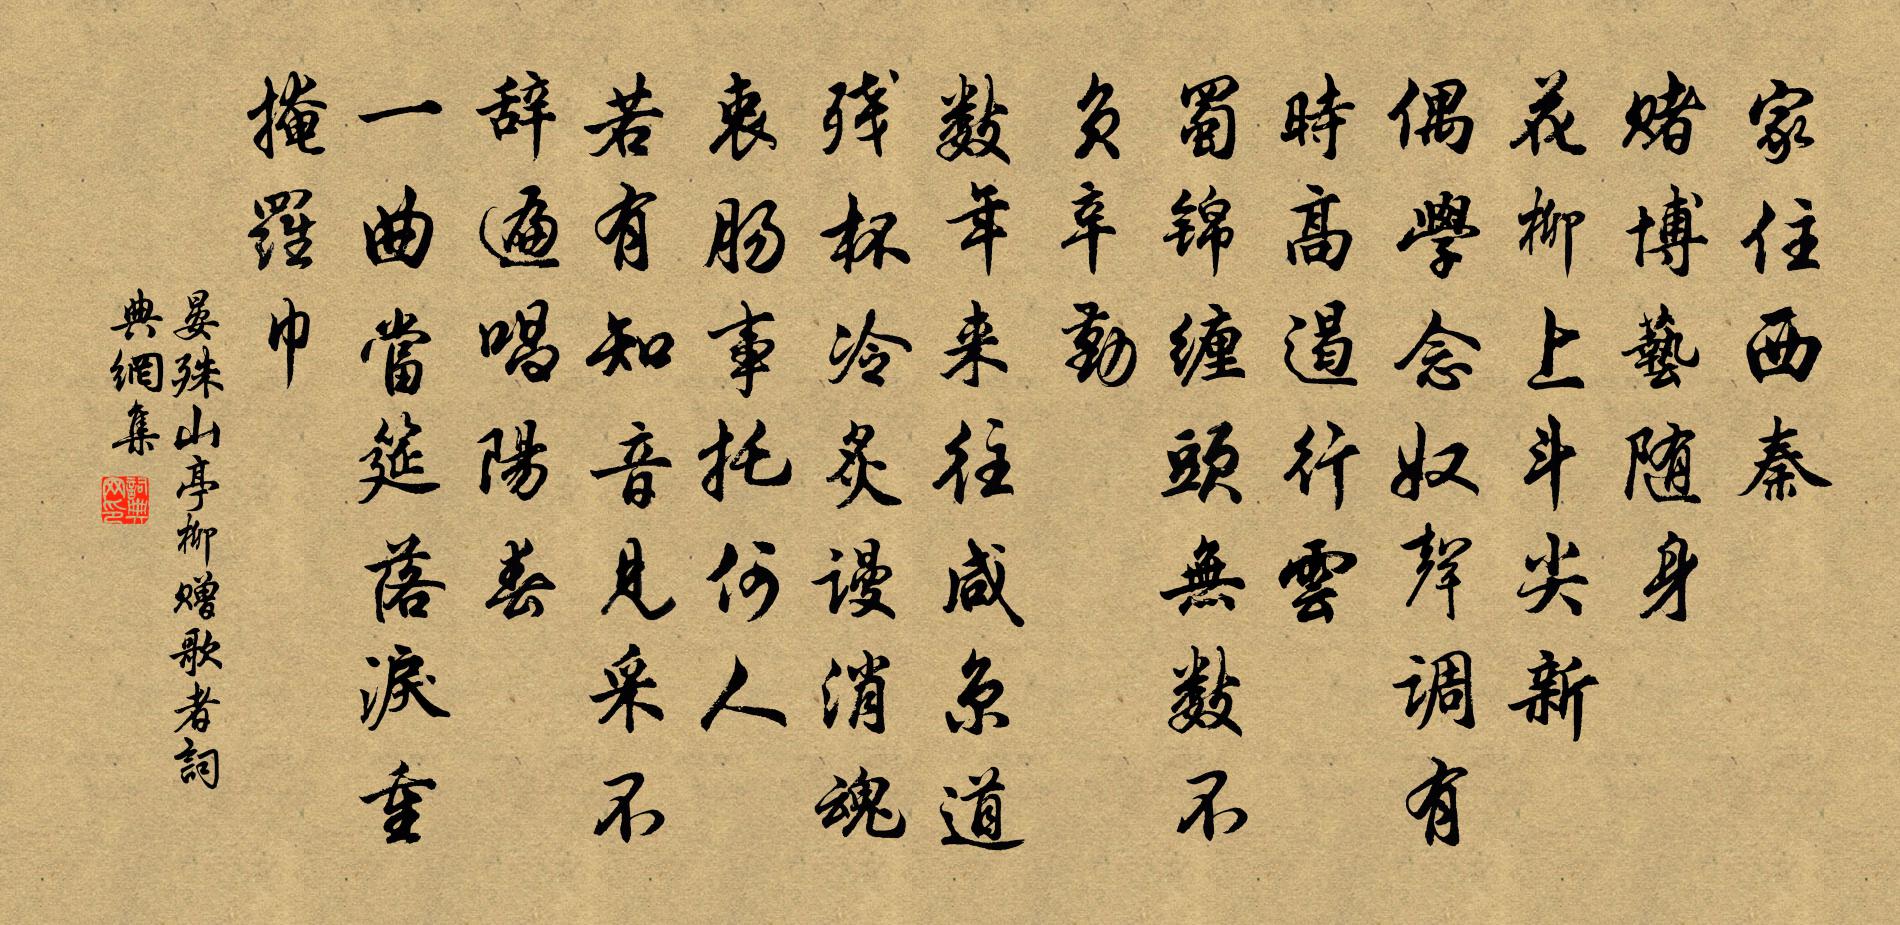 家住西秦
赌博藝随身
花柳上斗尖新
偶學念奴聲調有
時高遏行雲
蜀锦缠頭無數不
负辛勤
數年来往咸京道
残杯冷炙谩消魂
衷肠事托何人
若有知音見采不
辞遍唱陽春
一曲當筵落淚重
掩羅巾
晏殊山亭柳赠歌者詞
典網集
詞典網印